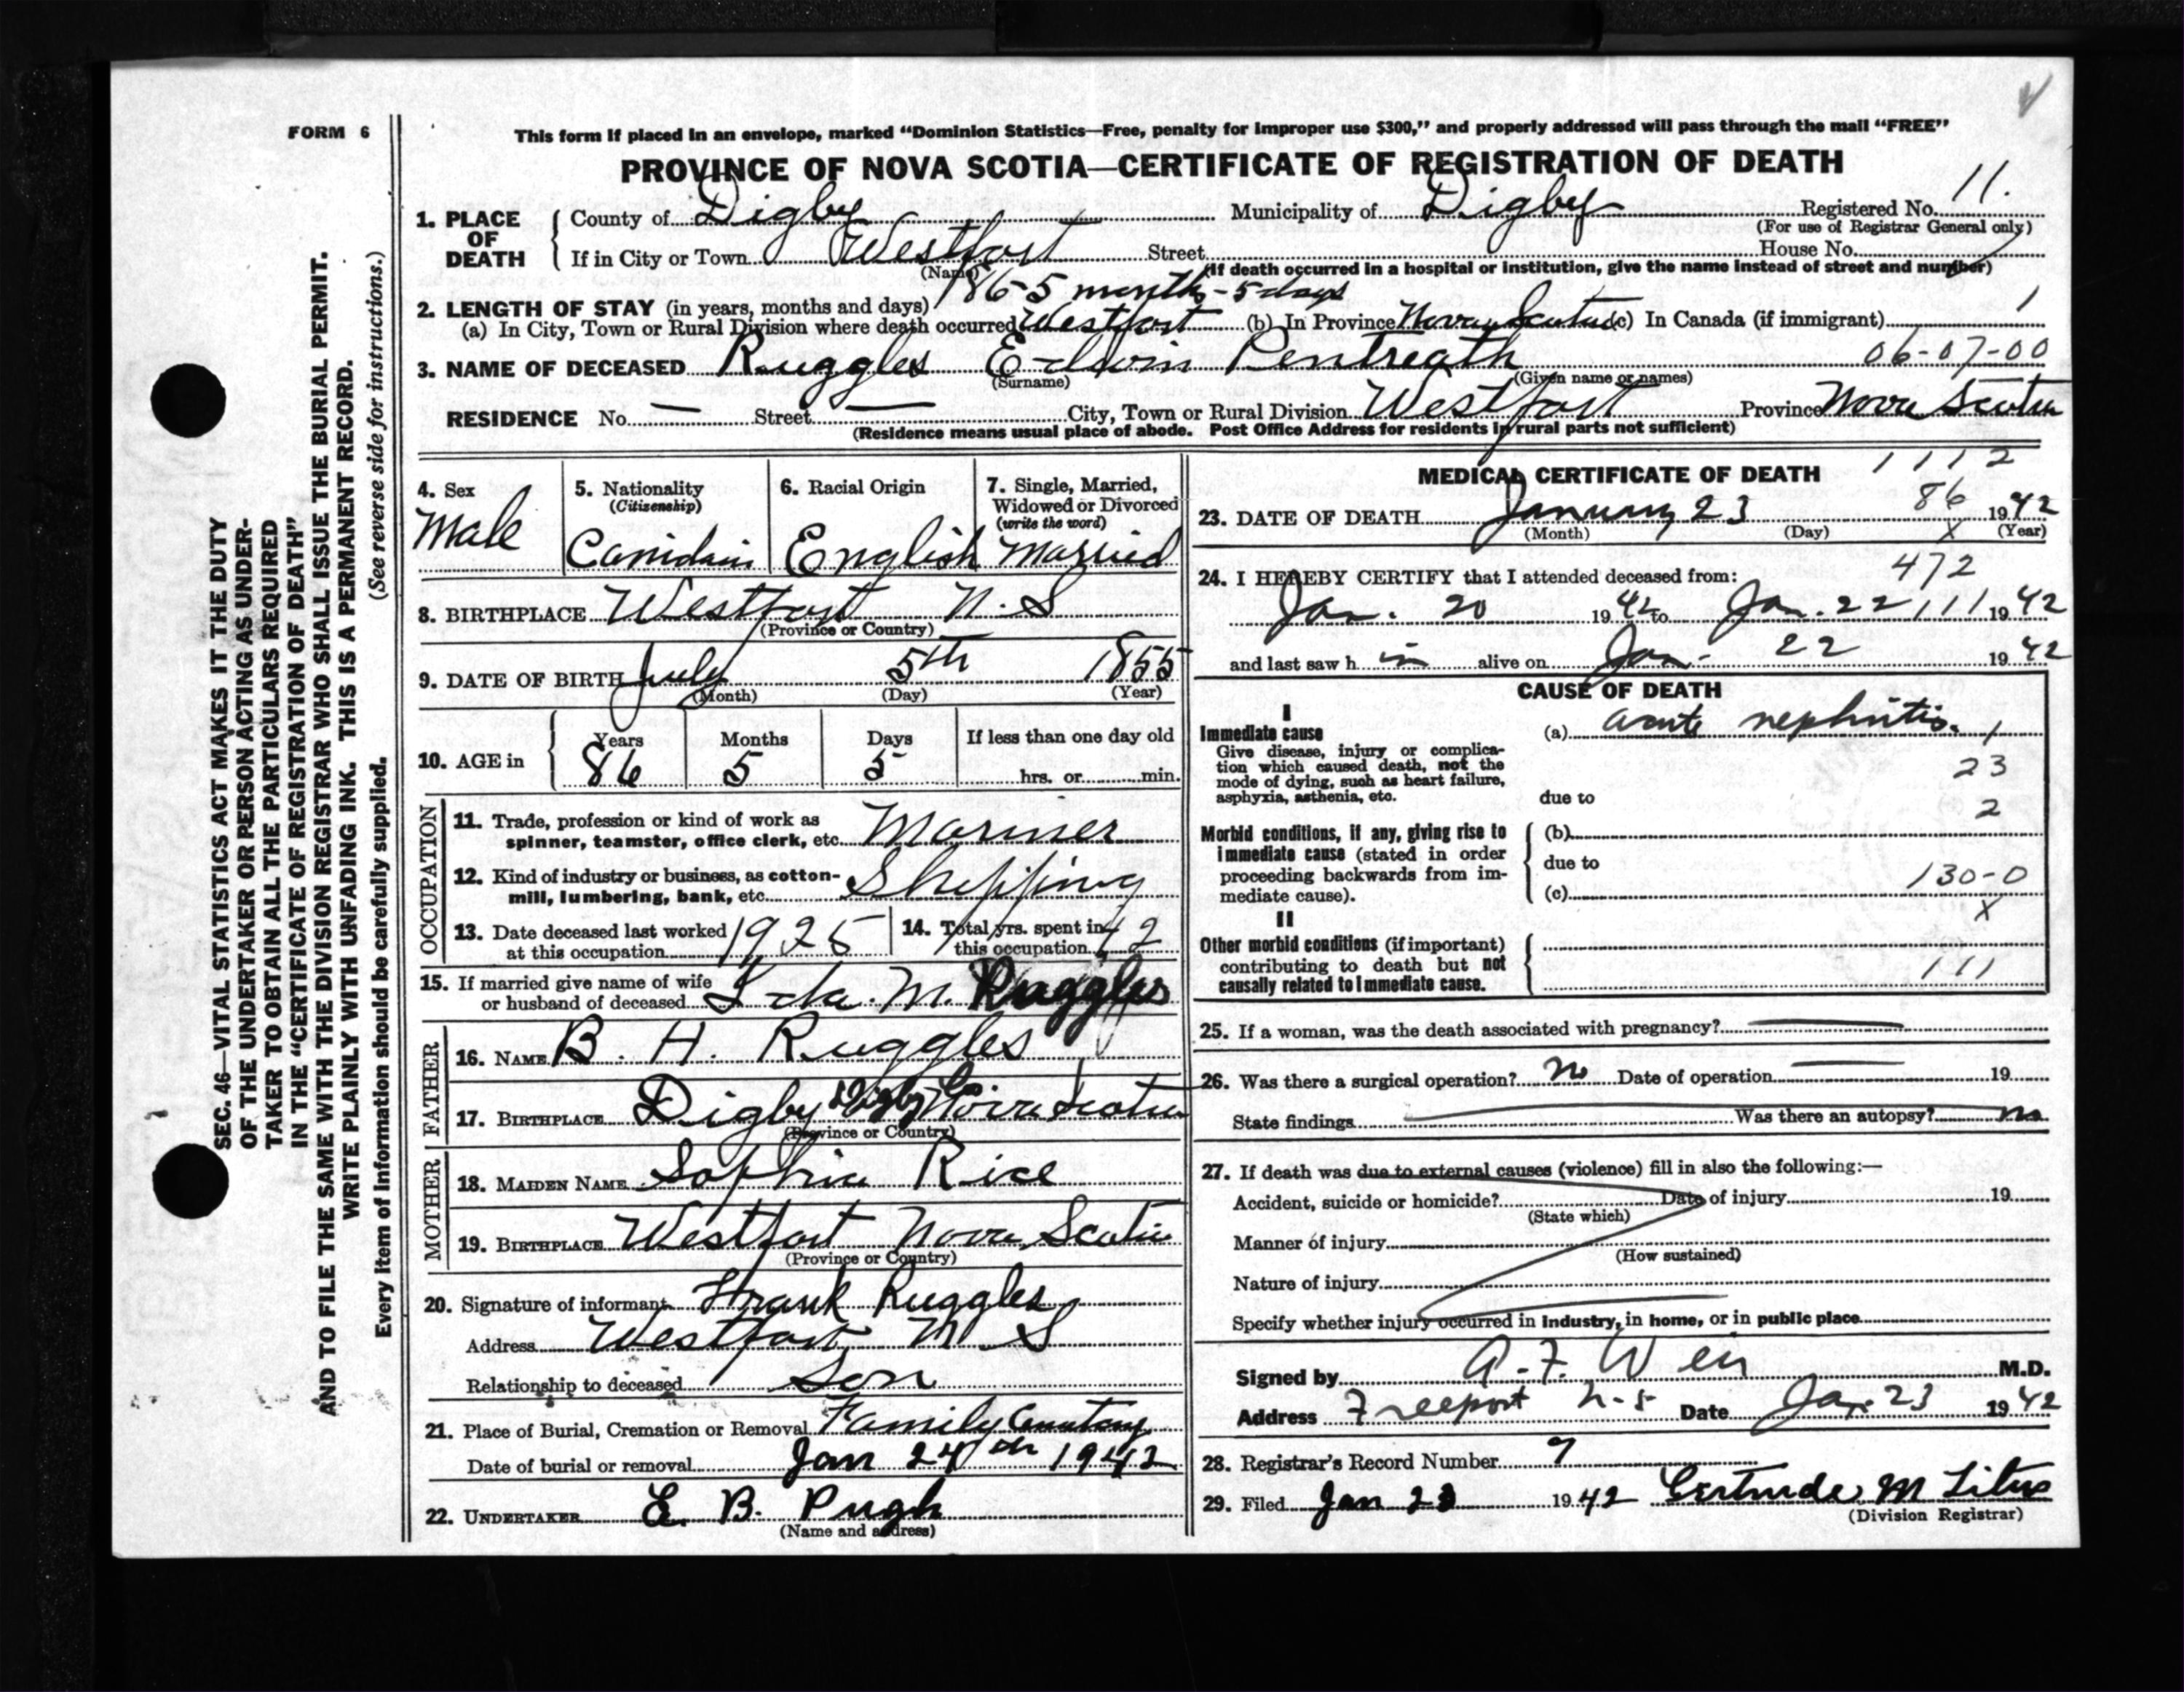 FORM 6
This form if placed in an envelope, marked “Dominion Statistics—Free, penalty for improper use $300,” and properly addressed will pass through the mail “FREE”
PROVINCE OF NOVA SCOTIA—CERTIFICATE OF REGISTRATION OF DEATH
SEC. 46—VITAL STATISTICS ACT MAKES IT THE DUTY
OF THE UNDERTAKER OR PERSON ACTING AS UNDER-
TAKER TO OBTAIN ALL THE PARTICULARS REQUIRED
IN THE “CERTIFICATE OF REGISTRATION OF DEATH”
AND TO FILE THE SAME WITH THE DIVISION REGISTRAR WHO SHALL ISSUE THE BURIAL PERMIT.
WRITE PLAINLY WITH UNFADING INK. THIS IS A PERMANENT RECORD.
Every item of information should be carefully supplied. (See reverse side for instructions.)
1. PLACE OF DEATH
County of Digby Municipality of Digby Registered No. 11.
(For use of Registrar General only)
If in City or Town Westport Street House No.
(Name) (If death occurred in a hospital or institution, give the name instead of street and number)
2. LENGTH OF STAY (in years, months and days) 86-5 months-5 days
(a) In City, Town or Rural Division where death occurred Westport (b) In Province Nova Scotia (c) In Canada (if immigrant) 1
3. NAME OF DECEASED Ruggles Edwin Pentreath 06-07-00
(Surname) (Given name or names)
RESIDENCE No. — Street — City, Town or Rural Division Westport Province Nova Scotia
(Residence means usual place of abode. Post Office Address for residents in rural parts not sufficient)
4. Sex
Male
5. Nationality
(Citizenship)
Canidain
6. Racial Origin
English
7. Single, Married,
Widowed or Divorced
(write the word)
Married
8. BIRTHPLACE Westport N.S
(Province or Country)
9. DATE OF BIRTH July 5th 1855
(Month) (Day) (Year)
10. AGE in
Years Months Days If less than one day old
86 5 5 hrs. or min.
OCCUPATION
11. Trade, profession or kind of work as
spinner, teamster, office clerk, etc. Mariner
12. Kind of industry or business, as cotton-
mill, lumbering, bank, etc. Shipping
13. Date deceased last worked
at this occupation 1925
14. Total yrs. spent in
this occupation 42
15. If married give name of wife
or husband of deceased Ida. M. Ruggles
FATHER
16. NAME B. H. Ruggles
17. BIRTHPLACE Digby Digby Co Nova Scotia
(Province or Country)
MOTHER
18. MAIDEN NAME Sophia Rice
19. BIRTHPLACE Westport Nova Scotia
(Province or Country)
20. Signature of informant Frank Ruggles
Address Westport N S
Relationship to deceased Son
21. Place of Burial, Cremation or Removal Family Cemetary
Date of burial or removal Jan 24th 1942
22. UNDERTAKER E. B. Pugh
(Name and address)
MEDICAL CERTIFICATE OF DEATH 1112
86
23. DATE OF DEATH January 23 1942
(Month) (Day) X (Year)
472
24. I HEREBY CERTIFY that I attended deceased from:
Jan. 20 1942 to Jan. 22 111 1942
and last saw h im alive on Jan. 22 1942
CAUSE OF DEATH
I
Immediate cause
Give disease, injury or complica-
tion which caused death, not the
mode of dying, such as heart failure,
asphyxia, asthenia, etc.
(a) acute nephritis. 1
23
due to
2
Morbid conditions, if any, giving rise to
immediate cause (stated in order
proceeding backwards from im-
mediate cause).
(b)
due to
130-0
(c)
X
II
Other morbid conditions (if important)
contributing to death but not
causally related to immediate cause.
111
25. If a woman, was the death associated with pregnancy? —
26. Was there a surgical operation? no Date of operation — 19
State findings — Was there an autopsy? no
27. If death was due to external causes (violence) fill in also the following:—
Accident, suicide or homicide? Date of injury 19
(State which)
Manner of injury
(How sustained)
Nature of injury
Specify whether injury occurred in industry, in home, or in public place
Signed by A. F. Weir M.D.
Address Freeport N.S Date Jan. 23 1942
28. Registrar's Record Number 7
29. Filed Jan 23 1942 Gertrude M Titus
(Division Registrar)